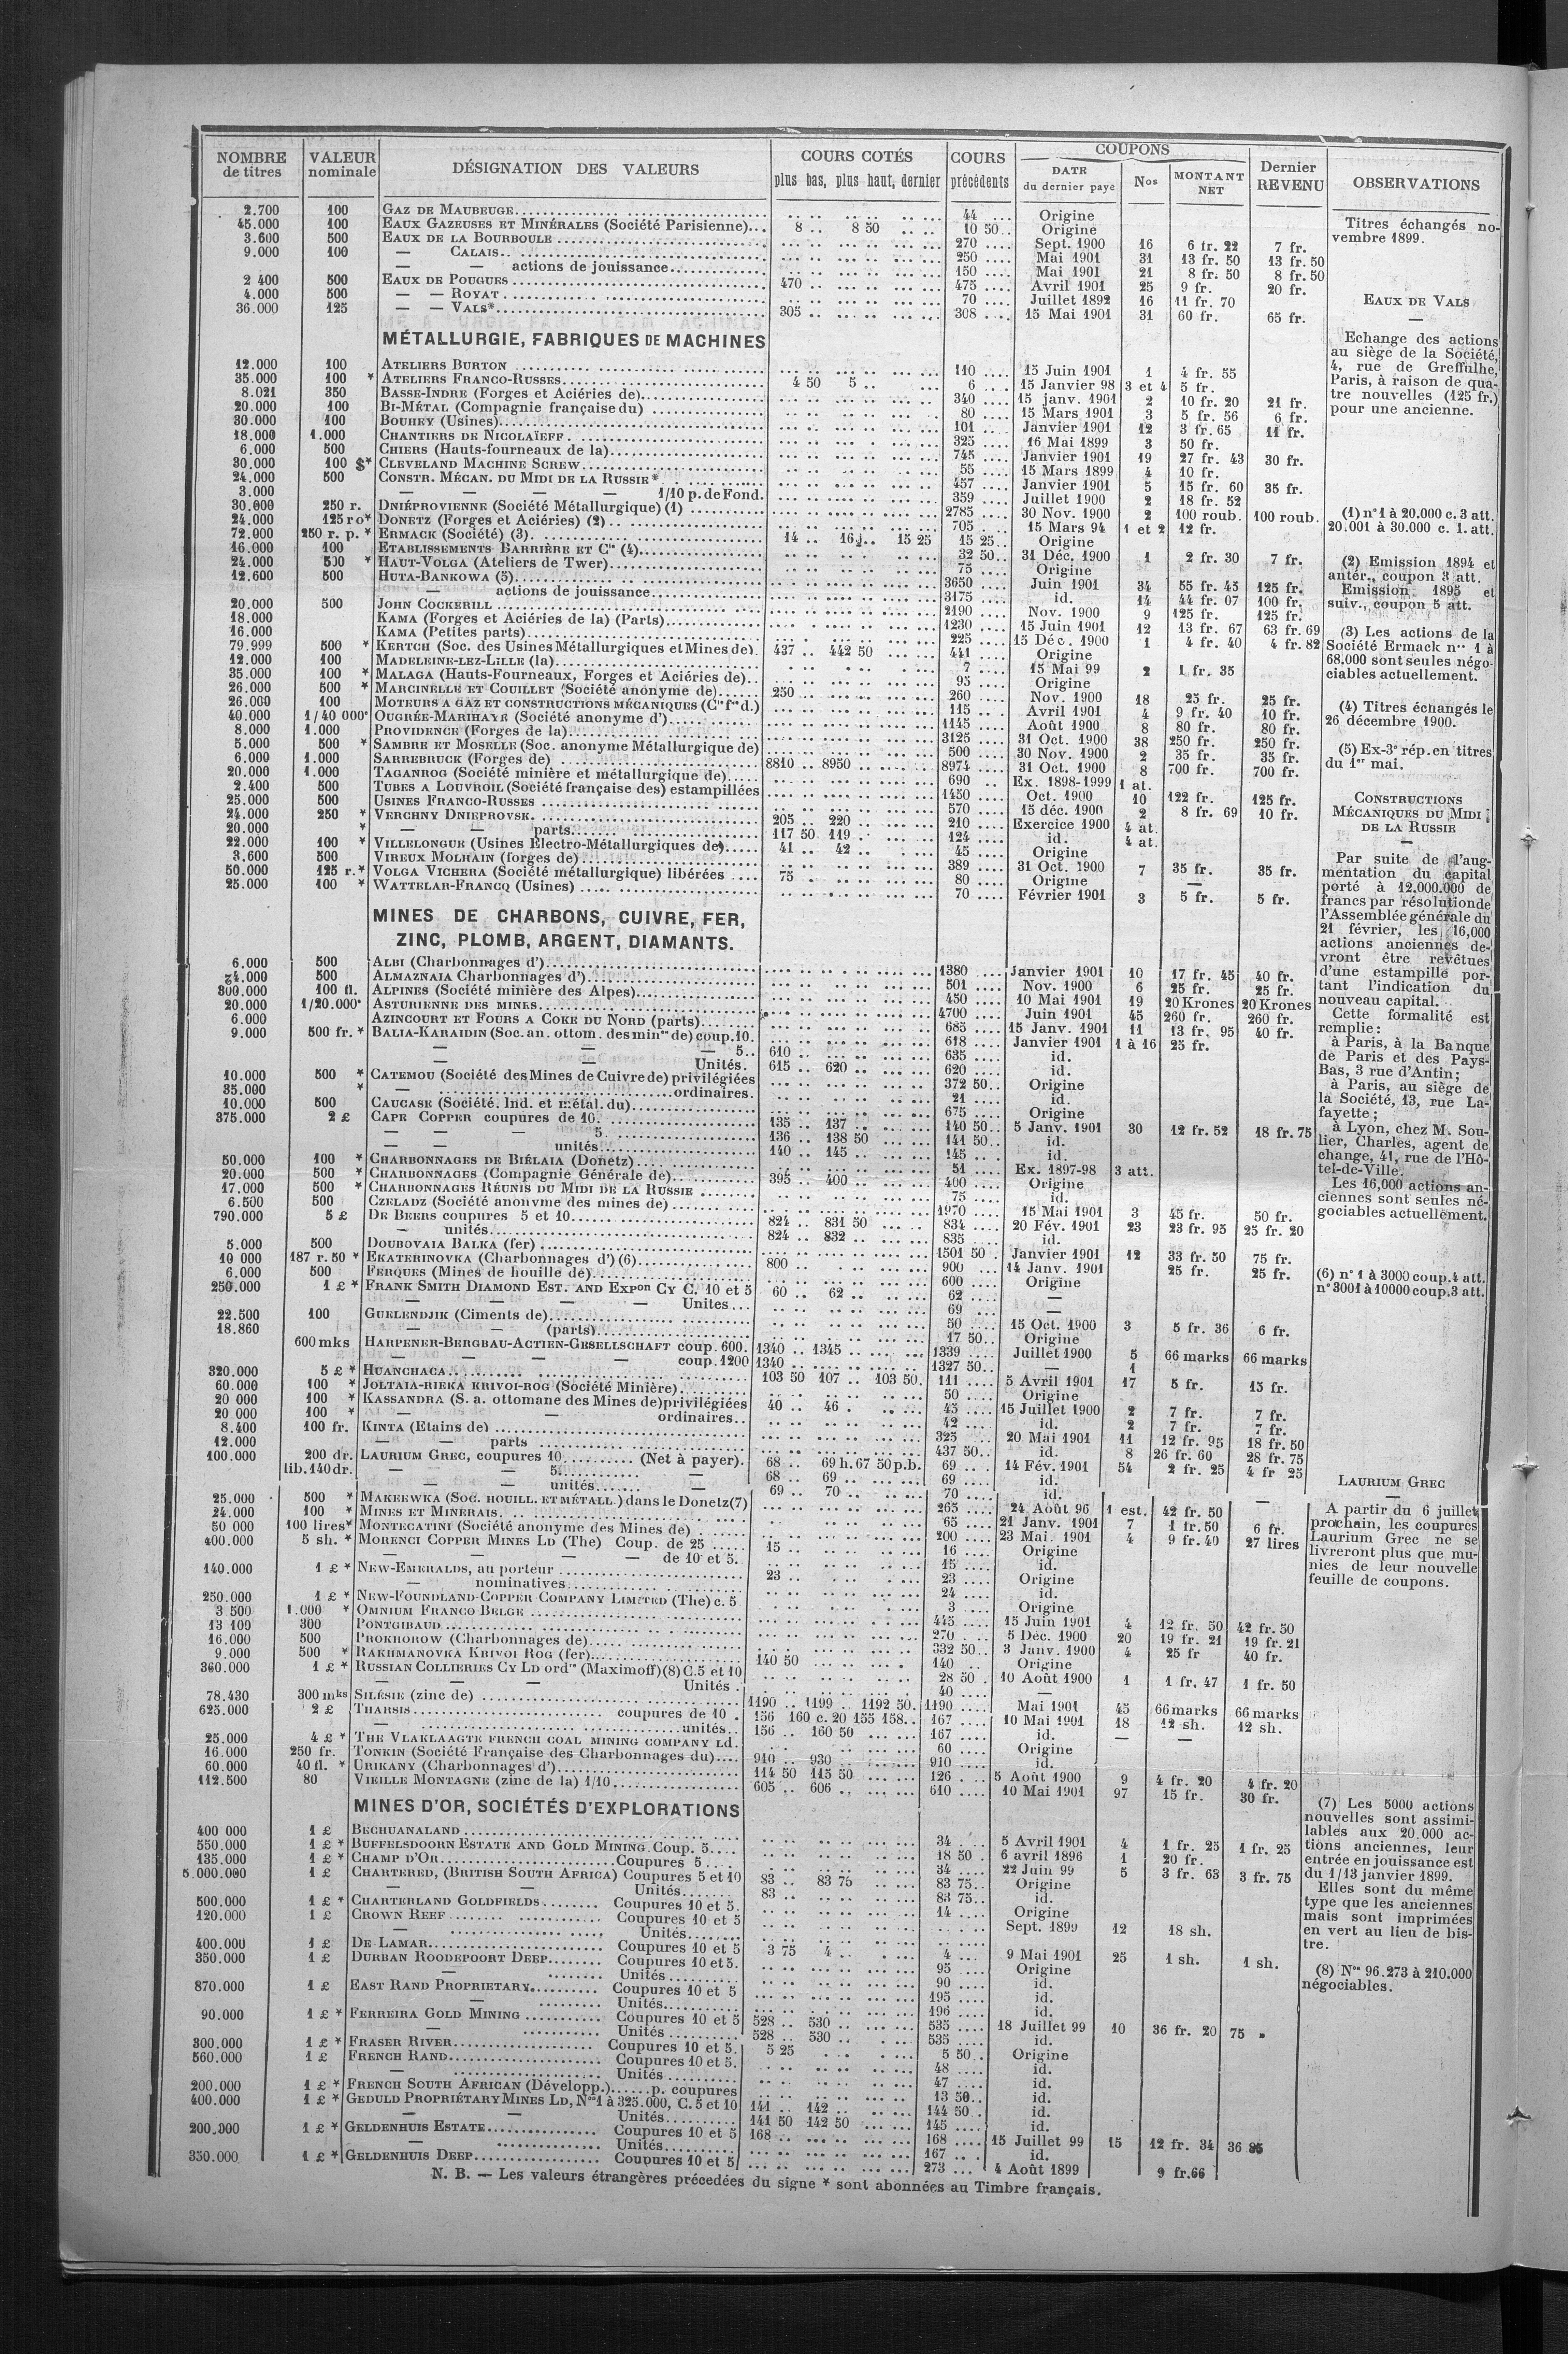 NOMBRE de titres | VALEUR nominale | DÉSIGNATION DES VALEURS | COURS COTÉS plus bas, plus haut, dernier | COURS précédents | COUPONS DATE du dernier payé | Nos | MONTANT NET | Dernier REVENU | OBSERVATIONS
2.700 100 GAZ DE MAUBEUGE 44 Origine
45.000 100 EAUX GAZEUSES ET MINÉRALES (Société Parisienne) 8 .. 8 50 10 50 Origine
3.600 500 EAUX DE LA BOURBOULE 270 Sept. 1900 16 6 fr. 22 7 fr.
9.000 100 — CALAIS 250 Mai 1901 31 13 fr. 50 13 fr. 50
— — actions de jouissance 150 Mai 1901 21 8 fr. 50 8 fr. 50
2 400 500 EAUX DE POUGUES 470 475 Avril 1901 25 9 fr. 20 fr.
4.000 500 — — ROYAT 70 Juillet 1892 16 11 fr. 70
36.000 125 — — VALS* 305 308 15 Mai 1901 31 60 fr. 65 fr.
MÉTALLURGIE, FABRIQUES DE MACHINES
12.000 100 ATELIERS BURTON 110 15 Juin 1901 1 4 fr. 55
35.000 100 * ATELIERS FRANCO-RUSSES 4 50 5 .. 6 15 Janvier 98 3 et 4 5 fr.
8.021 350 BASSE-INDRE (Forges et Aciéries de) 340 15 janv. 1901 2 10 fr. 20 21 fr.
20.000 100 BI-MÉTAL (Compagnie française du) 80 15 Mars 1901 3 5 fr. 56 6 fr.
30.000 100 BOUHEY (Usines) 101 Janvier 1901 12 3 fr. 65 11 fr.
18.000 1.000 CHANTIERS DE NICOLAÏEFF 325 16 Mai 1899 3 50 fr.
6.000 500 CHIERS (Hauts-fourneaux de la) 745 Janvier 1901 19 27 fr. 43 30 fr.
30.000 100 $* CLEVELAND MACHINE SCREW 55 15 Mars 1899 4 10 fr.
24.000 500 CONSTR. MÉCAN. DU MIDI DE LA RUSSIE* 457 Janvier 1901 5 15 fr. 60 35 fr.
3.000 — — — — 1/10 p. de Fond. 359 Juillet 1900 2 18 fr. 52
30.000 250 r. DNIÉPROVIENNE (Société Métallurgique) (1) 2785 30 Nov. 1900 2 100 roub. 100 roub.
24.000 125 ro* DONETZ (Forges et Aciéries) (2) 705 15 Mars 94 1 et 2 12 fr.
72.000 250 r. p. * ERMACK (Société) (3) 14 .. 16 .. 15 25 15 25 Origine
16.000 100 ETABLISSEMENTS BARRIÈRE ET Cie (4) 32 50 31 Déc. 1900 1 2 fr. 30 7 fr.
24.000 500 * HAUT-VOLGA (Ateliers de Twer) 75 Origine
12.600 500 HUTA-BANKOWA (5) 3650 Juin 1901 34 55 fr. 45 125 fr.
— actions de jouissance 3175 id. 14 44 fr. 07 100 fr.
20.000 500 JOHN COCKERILL 2190 Nov. 1900 9 125 fr. 125 fr.
18.000 KAMA (Forges et Aciéries de la) (Parts) 1230 15 Juin 1901 12 13 fr. 67 63 fr. 69
16.000 KAMA (Petites parts) 225 15 Déc. 1900 1 4 fr. 40 4 fr. 82
79.999 500 * KERTCH (Soc. des Usines Métallurgiques et Mines de) 437 .. 442 50 441 Origine
12.000 100 MADELEINE-LEZ-LILLE (la) 7 15 Mai 99 2 1 fr. 35
35.000 100 * MALAGA (Hauts-Fourneaux, Forges et Aciéries de) 95 Origine
26.000 500 * MARCINELLE ET COUILLET (Société anonyme de) 250 260 Nov. 1900 18 25 fr. 25 fr.
26.000 100 MOTEURS A GAZ ET CONSTRUCTIONS MÉCANIQUES (Cie fse d.) 115 Avril 1901 4 9 fr. 40 10 fr.
40.000 1/40 000e OUGRÉE-MARIHAYE (Société anonyme d') 1145 Août 1900 8 80 fr. 80 fr.
8.000 1.000 PROVIDENCE (Forges de la) 3125 31 Oct. 1900 38 250 fr. 250 fr.
5.000 500 * SAMBRE ET MOSELLE (Soc. anonyme Métallurgique de) 500 30 Nov. 1900 2 35 fr. 35 fr.
6.000 1.000 SARREBRUCK (Forges de) 8810 .. 8950 8974 31 Oct. 1900 8 700 fr. 700 fr.
20.000 1.000 TAGANROG (Société minière et métallurgique de) 690 Ex. 1898-1999 1 at.
2.400 500 TUBES A LOUVROIL (Société française des) estampillées 1450 Oct. 1900 10 122 fr. 125 fr.
25.000 500 USINES FRANCO-RUSSES 570 15 déc. 1900 2 8 fr. 69 10 fr.
24.000 250 * VERCHNY DNIEPROVSK 205 .. 220 210 Exercice 1900 4 at.
20.000 * — — parts 117 50 119 124 id. 4 at.
22.000 100 * VILLELONGUE (Usines Electro-Métallurgiques de) 41 .. 42 45 Origine
3.600 500 VIREUX MOLHAIN (forges de) 389 31 Oct. 1900 7 35 fr. 35 fr.
50.000 125 r.* VOLGA VICHERA (Société métallurgique) libérées 75 80 Origine —
25.000 100 * WATTELAR-FRANCQ (Usines) 70 Février 1901 3 5 fr. 5 fr.
MINES DE CHARBONS, CUIVRE, FER,
ZINC, PLOMB, ARGENT, DIAMANTS.
6.000 500 ALBI (Charbonnages d') 1380 Janvier 1901 10 17 fr. 45 40 fr.
24.000 500 ALMAZNAIA Charbonnages d') 501 Nov. 1900 6 25 fr. 25 fr.
800.000 100 fl. ALPINES (Société minière des Alpes) 450 10 Mai 1901 19 20 Krones 20 Krones
20.000 1/20.000e ASTURIENNE DES MINES 4700 Juin 1901 45 260 fr. 260 fr.
6.000 AZINCOURT ET FOURS A COKE DU NORD (parts) 685 15 Janv. 1901 11 13 fr. 95 40 fr.
9.000 500 fr. * BALIA-KARAIDIN (Soc. an. ottom. des mines de) coup. 10 618 Janvier 1901 1 à 16 25 fr.
— — — 5 610 635 id.
— — Unités. 615 .. 620 620 id.
10.000 500 * CATEMOU (Société des Mines de Cuivre de) privilégiées 372 50 Origine
35.000 * — ordinaires. 21 id.
10.000 500 CAUCASE (Société. Ind. et métal. du) 675 Origine
375.000 2 £ CAPE COPPER coupures de 10. 135 .. 137 140 50 5 Janv. 1901 30 12 fr. 52 18 fr. 75
— — — 5 136 .. 138 50 141 50 id.
— — unités 140 .. 145 145 id.
50.000 100 * CHARBONNAGES DE BIÉLAIA (Donetz) 51 Ex. 1897-98 3 att.
20.000 500 * CHARBONNAGES (Compagnie Générale de) 395 .. 400 400 Origine
17.000 500 * CHARBONNAGES RÉUNIS DU MIDI DE LA RUSSIE 75 id.
6.500 500 CZELADZ (Société anonyme des mines de) 1970 15 Mai 1901 3 45 fr. 50 fr.
790.000 5 £ DE BEERS coupures 5 et 10 824 .. 831 50 834 20 Fév. 1901 23 23 fr. 95 25 fr. 20
— unités 824 .. 832 835 id.
5.000 500 DOUBOVAIA BALKA (fer) 1501 50 Janvier 1901 12 33 fr. 50 75 fr.
10 000 187 r. 50 * EKATERINOVKA (Charbonnages d') (6) 800 900 14 Janv. 1901 25 fr. 25 fr.
6.000 500 FERQUES (Mines de houille de) 600 Origine
250.000 1 £ * FRANK SMITH DIAMOND EST. AND EXPon CY C. 10 et 5 60 .. 62 62 —
— — — — Unites 69 —
22.500 100 GUELENDJIK (Ciments de) 50 15 Oct. 1900 3 5 fr. 36 6 fr.
18.860 — — (parts) 17 50 Origine
600 mks HARPENER-BERGBAU-ACTIEN-GESELLSCHAFT coup. 600. 1340 .. 1345 1339 Juillet 1900 5 66 marks 66 marks
— — — — coup. 1200 1340 1327 50 — 1
320.000 5 £ * HUANCHACA 103 50 107 .. 103 50. 111 5 Avril 1901 17 5 fr. 15 fr.
60.000 100 * JOLTAIA-RIEKA KRIVOI-ROG (Société Minière) 50 Origine
20 000 100 * KASSANDRA (S. a. ottomane des Mines de) privilégiées 40 .. 46 45 15 Juillet 1900 2 7 fr. 7 fr.
20 000 100 * — — ordinaires 42 id. 2 7 fr. 7 fr.
8.400 100 fr. KINTA (Etains de) 325 20 Mai 1901 11 12 fr. 95 18 fr. 50
12.000 — — parts 437 50 id. 8 26 fr. 60 28 fr. 75
100.000 200 dr. LAURIUM GREC, coupures 10 (Net à payer). 68 .. 69 h. 67 50 p.b. 69 14 Fév. 1901 54 2 fr. 25 4 fr 25
lib. 140 dr. — — 5 — 68 .. 69 69 id.
— — unités — 69 .. 70 70 id. —
25.000 500 * MAKEEWKA (Soc. HOUILL. ET MÉTALL.) dans le Donetz (7) 265 24 Août 96 1 est. 42 fr. 50
24.000 100 * MINES ET MINERAIS 65 21 Janv. 1901 7 1 fr. 50 6 fr.
50 000 100 lires* MONTECATINI (Société anonyme des Mines de) 200 23 Mai. 1901 4 9 fr. 40 27 lires
400.000 5 sh. * MORENCI COPPER MINES LD (The) Coup. de 25 15 16 Origine
— — — — de 10 et 5. 15 id.
140.000 1 £ * NEW-EMERALDS, au porteur 23 23 Origine
— nominatives 24 id.
250.000 1 £ * NEW-FOUNDLAND-COPPER COMPANY LIMITED (The) c. 5 3 Origine
3 500 1.000 * OMNIUM FRANCO BELGE 445 15 Juin 1901 4 12 fr. 50 42 fr. 50
13 109 300 PONTGIBAUD 270 5 Déc. 1900 20 19 fr. 21 19 fr. 21
16.000 500 PROKHOROW (Charbonnages de) 332 50 3 Janv. 1900 4 25 fr 40 fr.
9.000 500 * RAKHMANOVKA KRIVOI ROG (fer) 140 50 140 Origine
360.000 1 £ * RUSSIAN COLLIERIES CY LD ordres (Maximoff) (8) C. 5 et 10 28 50 10 Août 1900 1 1 fr. 47 1 fr. 50
— — — — Unités 40 —
78.430 300 mks SILÉSIE (zinc de) 1190 .. 1199 .. 1192 50. 1190 Mai 1901 45 66 marks 66 marks
625.000 2 £ THARSIS coupures de 10 156 160 c. 20 155 158 167 10 Mai 1901 18 12 sh. 12 sh.
— unités 156 .. 160 50 167 id. — —
25.000 4 £ * THE VLAKLAAGTE FRENCH COAL MINING COMPANY Ld. 60 Origine
16.000 250 fr. TONKIN (Société Française des Charbonnages du) 910 .. 930 910 id.
60.000 40 fl. * URIKANY (Charbonnages d') 114 50 115 50 126 5 Août 1900 9 4 fr. 20 4 fr. 20
112.500 80 VIEILLE MONTAGNE (zinc de la) 1/10 605 .. 606 610 10 Mai 1901 97 15 fr. 30 fr.
MINES D'OR, SOCIÉTÉS D'EXPLORATIONS
400 000 1 £ BECHUANALAND 34 5 Avril 1901 4 1 fr. 25 1 fr. 25
550.000 1 £ * BUFFELSDOORN ESTATE AND GOLD MINING Coup. 5 18 50 6 avril 1896 1 20 fr.
135.000 1 £ * CHAMP D'OR Coupures 5 34 22 Juin 99 5 3 fr. 63 3 fr. 75
5.000.000 1 £ CHARTERED, (BRITISH SOUTH AFRICA) Coupures 5 et 10 83 .. 83 75 83 75 Origine
— — Unités 83 83 75 id.
500.000 1 £ * CHARTERLAND GOLDFIELDS Coupures 10 et 5. 14 Origine
120.000 1 £ CROWN REEF Coupures 10 et 5 Sept. 1899 12 18 sh.
— Unités
400.000 1 £ DE LAMAR Coupures 10 et 5 3 75 4 4 9 Mai 1901 25 1 sh. 1 sh.
350.000 1 £ DURBAN ROODEPOORT DEEP Coupures 10 et 5. 95 Origine
— Unités 90 id.
870.000 1 £ EAST RAND PROPRIETARY Coupures 10 et 5 195 id.
— Unités 196 id.
90.000 1 £ * FERREIRA GOLD MINING Coupures 10 et 5 528 .. 530 535 18 Juillet 99 10 36 fr. 20 75 »
— Unités 528 .. 530 535 id.
300.000 1 £ * FRASER RIVER Coupures 10 et 5. 5 25 5 50 Origine
560.000 1 £ FRENCH RAND Coupures 10 et 5. 48 id.
— Unités 47 id.
200.000 1 £ * FRENCH SOUTH AFRICAN (Développ.) p. coupures 13 50 id.
400.000 1 £ * GEDULD PROPRIÉTARY MINES LD, Nos 1 à 325.000, C. 5 et 10 141 .. 142 144 50 id.
— — Unités 141 50 142 50 145 id.
200.000 1 £ * GELDENHUIS ESTATE Coupures 10 et 5 168 168 15 Juillet 99 15 12 fr. 34 36 85
— Unités 167 id.
350.000 1 £ * GELDENHUIS DEEP Coupures 10 et 5 273 4 Août 1899 9 fr. 66
N. B. — Les valeurs étrangères précedées du signe * sont abonnées au Timbre français.
Titres échangés no-
vembre 1899.
EAUX DE VALS
—
Echange des actions
au siège de la Société,
4, rue de Greffulhe,
Paris, à raison de qua-
tre nouvelles (125 fr.)
pour une ancienne.
(1) n° 1 à 20.000 c. 3 att.
20.001 à 30.000 c. 1. att.
(2) Emission 1894 et
antér., coupon 3 att.
Emission 1895 et
suiv., coupon 5 att.
(3) Les actions de la
Société Ermack nos 1 à
68.000 sont seules négo-
ciables actuellement.
(4) Titres échangés le
26 décembre 1900.
(5) Ex-3e rép. en titres
du 1er mai.
CONSTRUCTIONS
MÉCANIQUES DU MIDI
DE LA RUSSIE
—
Par suite de l'aug-
mentation du capital
porté à 12.000.000 de
francs par résolution de
l'Assemblée générale du
21 février, les 16,000
actions anciennes de-
vront être revêtues
d'une estampille por-
tant l'indication du
nouveau capital.
Cette formalité est
remplie :
à Paris, à la Banque
de Paris et des Pays-
Bas, 3 rue d'Antin ;
à Paris, au siège de
la Société, 13, rue La-
fayette ;
à Lyon, chez M. Sou-
lier, Charles, agent de
change, 41, rue de l'Hô-
tel-de-Ville.
Les 16,000 actions an-
ciennes sont seules né-
gociables actuellement.
(6) n° 1 à 3000 coup. 4 att.
n° 3001 à 10000 coup. 3 att.
LAURIUM GREC
—
A partir du 6 juillet
prochain, les coupures
Laurium Grec ne se
livreront plus que mu-
nies de leur nouvelle
feuille de coupons.
(7) Les 5000 actions
nouvelles sont assimi-
lables aux 20.000 ac-
tions anciennes, leur
entrée en jouissance est
du 1/13 janvier 1899.
Elles sont du même
type que les anciennes
mais sont imprimées
en vert au lieu de bis-
tre.
(8) Nos 96.273 à 210.000
négociables.